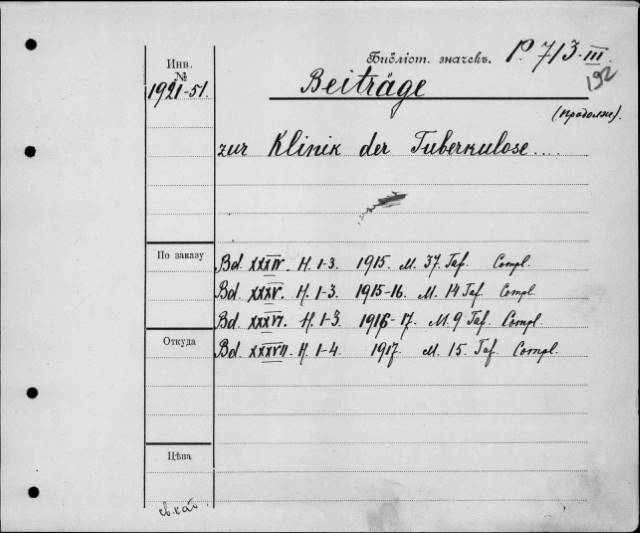 Инв. №
1921-51.
Библіот. значекъ. P. 713.III
192
Beiträge
(продолже).
zur Klinik der Tuberkulose....
По заказу
Bd. XXXIV. H. 1-3. 1915. M. 37. Taf. Compl.
Bd. XXXV. H. 1-3. 1915-16. M. 14 Taf. Compl.
Bd. XXXVI. H. 1-3. 1916-17. M. 9 Taf. Compl.
Откуда
Bd. XXXVII. H. 1-4. 1917. M. 15. Taf. Compl.
Цѣна